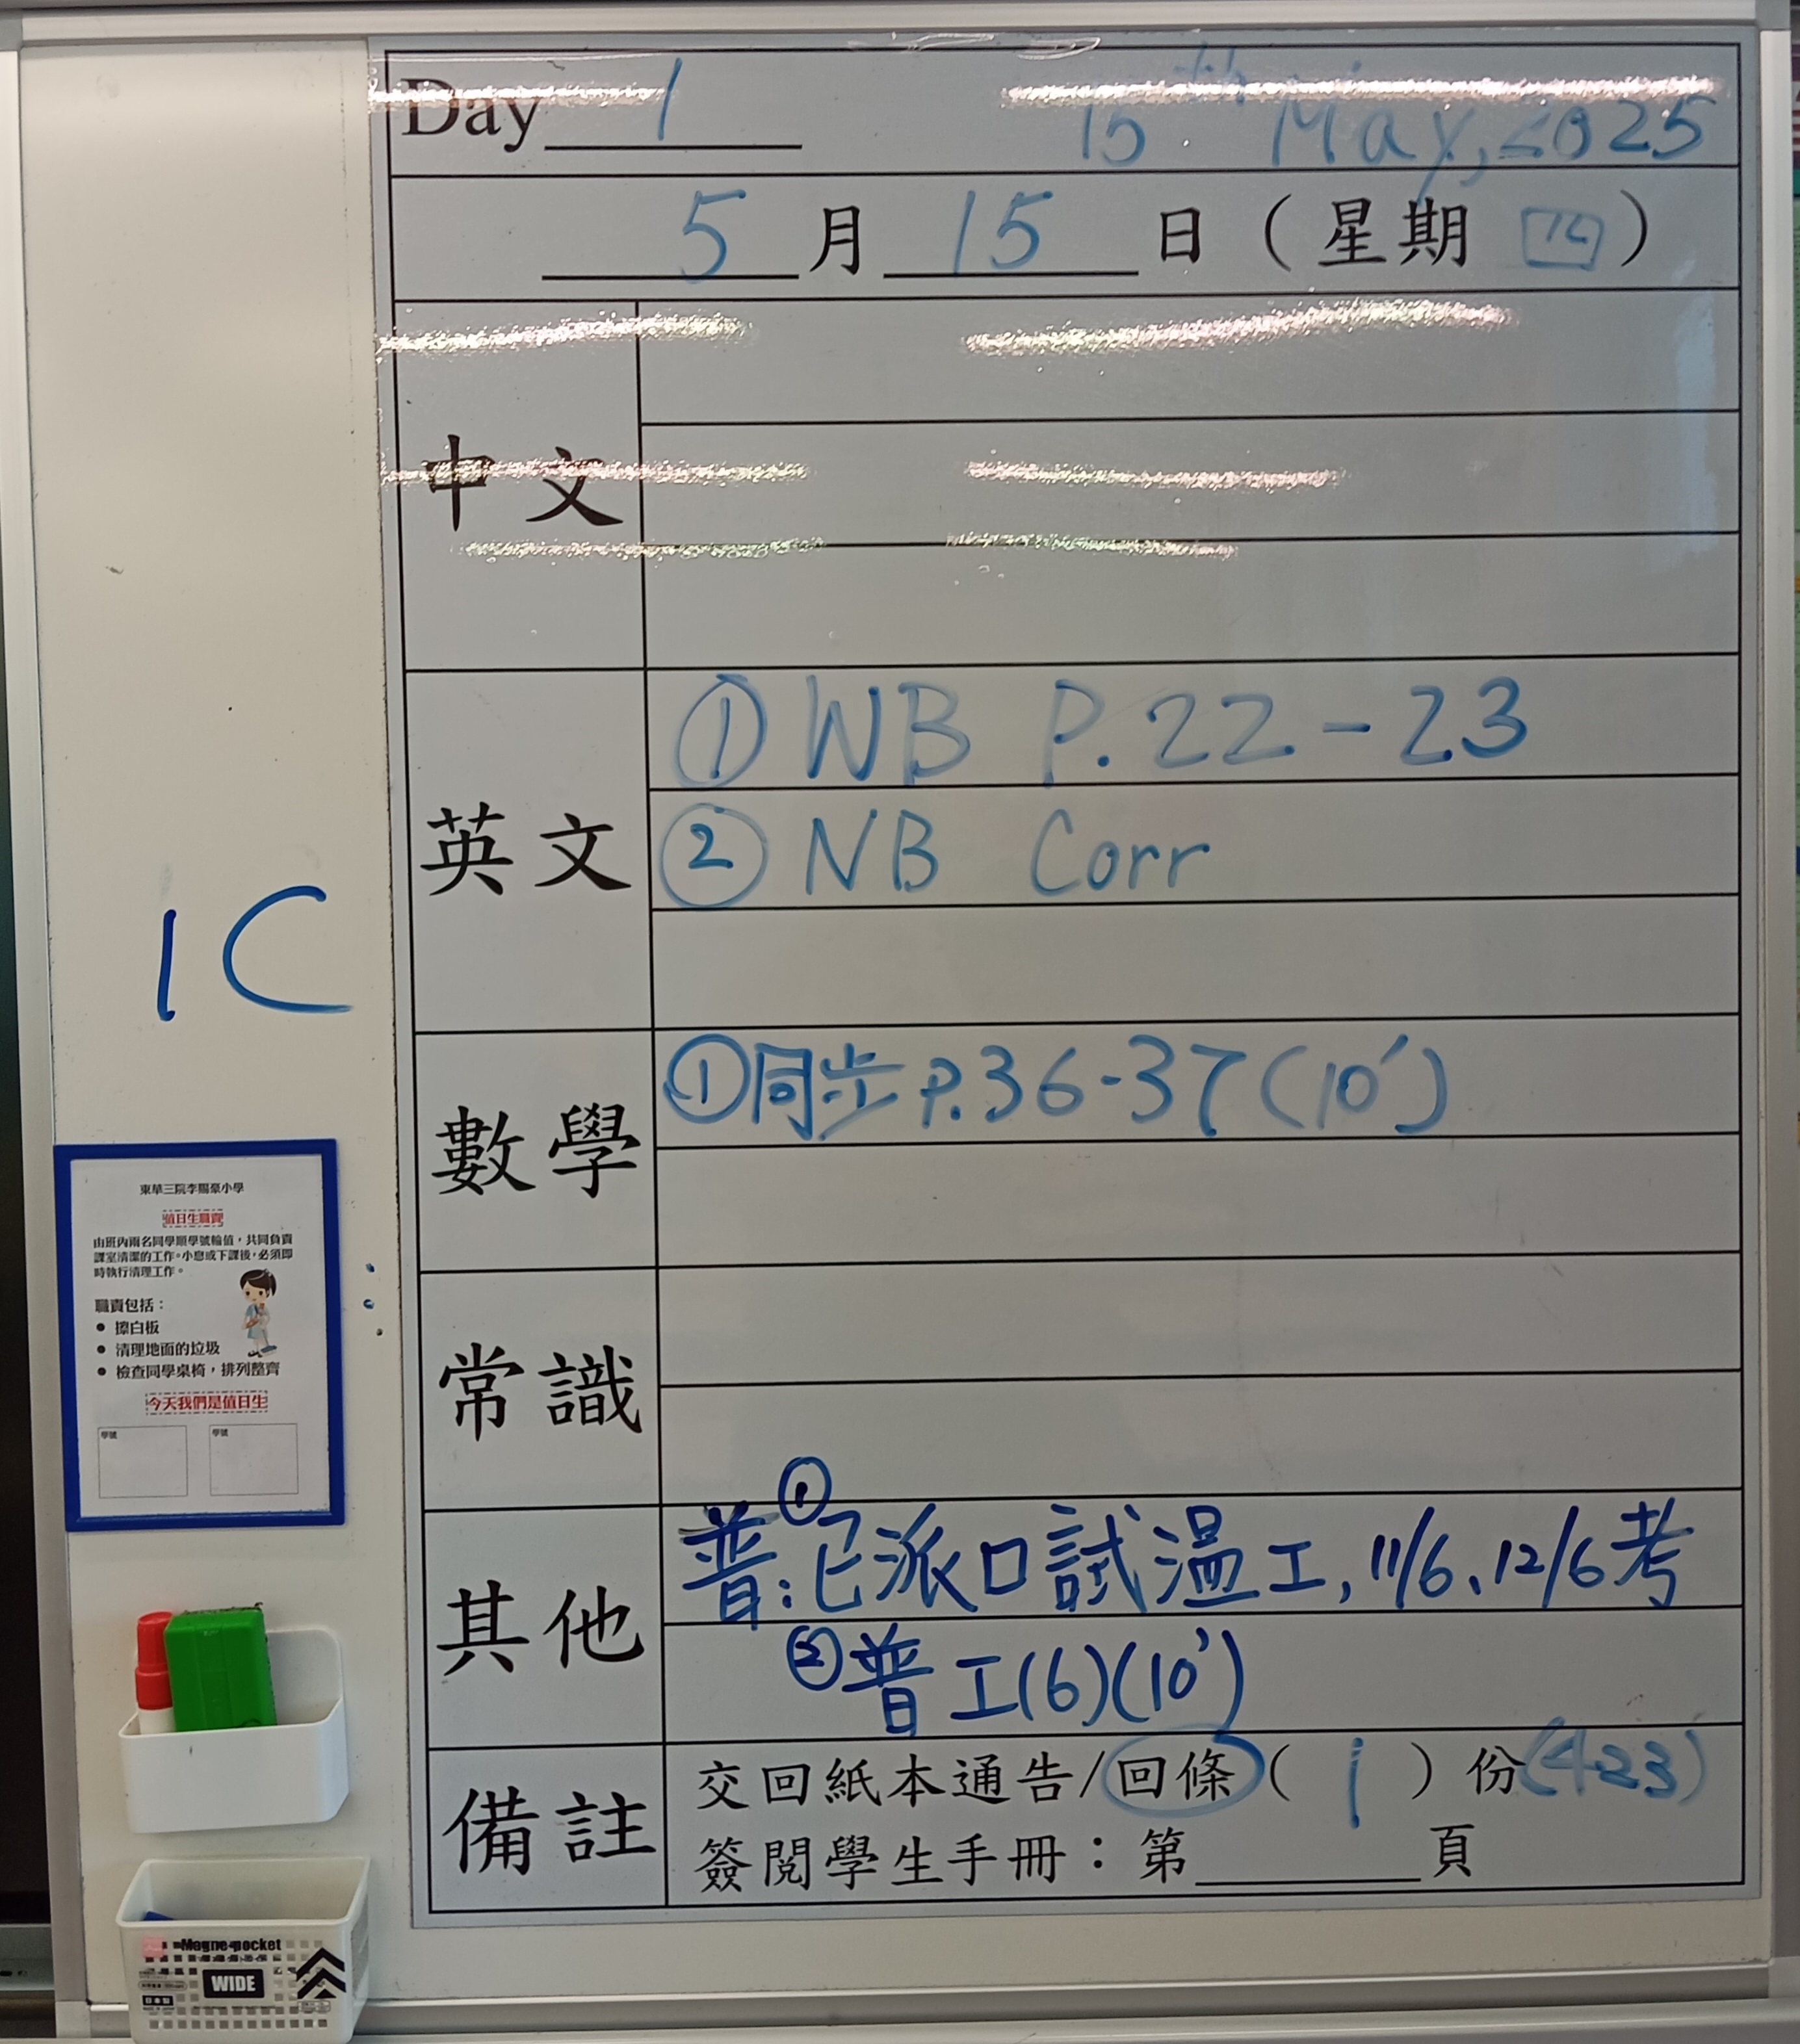 Day 1 15th May, 2025
5 月 15 日 ( 星期 四 )
中文
英文
① WB P.22-23
② NB Corr
1C
數學
① 同步 P.36-37 (10')
常識
其他
普: ① 已派口試溫工, 11/6、12/6考
② 普工(6)(10')
備註
交回紙本通告/回條 ( 1 ) 份 (423)
簽閱學生手冊：第______頁
東華三院李賜豪小學
值日生職責
由班內兩名同學順學號輪值，共同負責
課室清潔的工作。小息或下課後，必須即
時執行清理工作。
職責包括：
• 擦白板
• 清理地面的垃圾
• 檢查同學桌椅，排列整齊
今天我們是值日生
學號 學號
Magne-pocket
WIDE
日本製